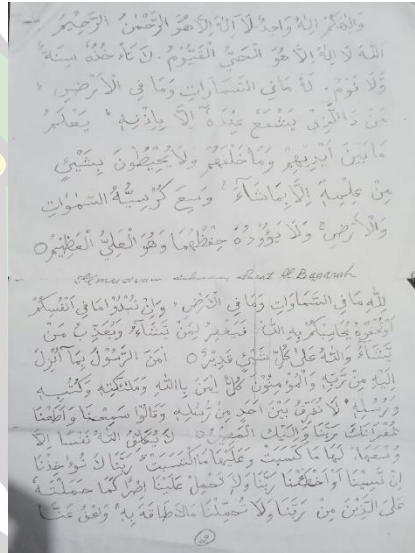 وَإِلٰهُكُمْ إِلٰهٌ وَاحِدٌ لَا إِلٰهَ إِلَّا هُوَ الرَّحْمٰنُ الرَّحِيْمُ
اَللّٰهُ لَا إِلٰهَ إِلَّا هُوَ الْحَيُّ الْقَيُّوْمُ. لَا تَأْخُذُهُ سِنَةٌ
وَلَا نَوْمٌ. لَهُ مَا فِي السَّمَاوَاتِ وَمَا فِي الْأَرْضِ،
مَنْ ذَا الَّذِيْ يَشْفَعُ عِنْدَهُ إِلَّا بِإِذْنِهِ، يَعْلَمُ
مَا بَيْنَ أَيْدِيْهِمْ وَمَا خَلْفَهُمْ وَلَا يُحِيْطُوْنَ بِشَيْئٍ
مِنْ عِلْمِهِ إِلَّا بِمَا شَاءَ، وَسِعَ كُرْسِيُّهُ السَّمٰوَاتِ
وَالْأَرْضَ وَلَا يَؤُوْدُهُ حِفْظُهُمَا وَهُوَ الْعَلِيُّ الْعَظِيْمُ ○
Surat Al Baqarah
لِلّٰهِ مَا فِي السَّمَاوَاتِ وَمَا فِي الْأَرْضِ، وَإِنْ تُبْدُوْا مَا فِيْ أَنْفُسِكُمْ
أَوْ تُخْفُوْهُ يُحَاسِبْكُمْ بِهِ اللّٰهُ، فَيَغْفِرُ لِمَنْ يَشَاءُ وَيُعَذِّبُ مَنْ
يَشَاءُ وَاللّٰهُ عَلَى كُلِّ شَيْئٍ قَدِيْرٌ ○ اٰمَنَ الرَّسُوْلُ بِمَا أُنْزِلَ
إِلَيْهِ مِنْ رَبِّهِ وَالْمُؤْمِنُوْنَ كُلٌّ اٰمَنَ بِاللّٰهِ وَمَلٰئِكَتِهِ وَكُتُبِهِ
وَرُسُلِهِ، لَا نُفَرِّقُ بَيْنَ أَحَدٍ مِنْ رُسُلِهِ وَقَالُوْا سَمِعْنَا وَأَطَعْنَا
غُفْرَانَكَ رَبَّنَا وَإِلَيْكَ الْمَصِيْرُ ○ لَا يُكَلِّفُ اللّٰهُ نَفْسًا إِلَّا
وُسْعَهَا، لَهَا مَا كَسَبَتْ وَعَلَيْهَا مَا اكْتَسَبَتْ، رَبَّنَا لَا تُؤَاخِذْنَا
إِنْ نَسِيْنَا أَوْ أَخْطَأْنَا رَبَّنَا وَلَا تَحْمِلْ عَلَيْنَا إِصْرًا كَمَا حَمَلْتَهُ
عَلَى الَّذِيْنَ مِنْ رَبَّنَا وَلَا تُحَمِّلْنَا مَا لَا طَاقَةَ لَنَا بِهِ، وَاعْفُ عَنَّا